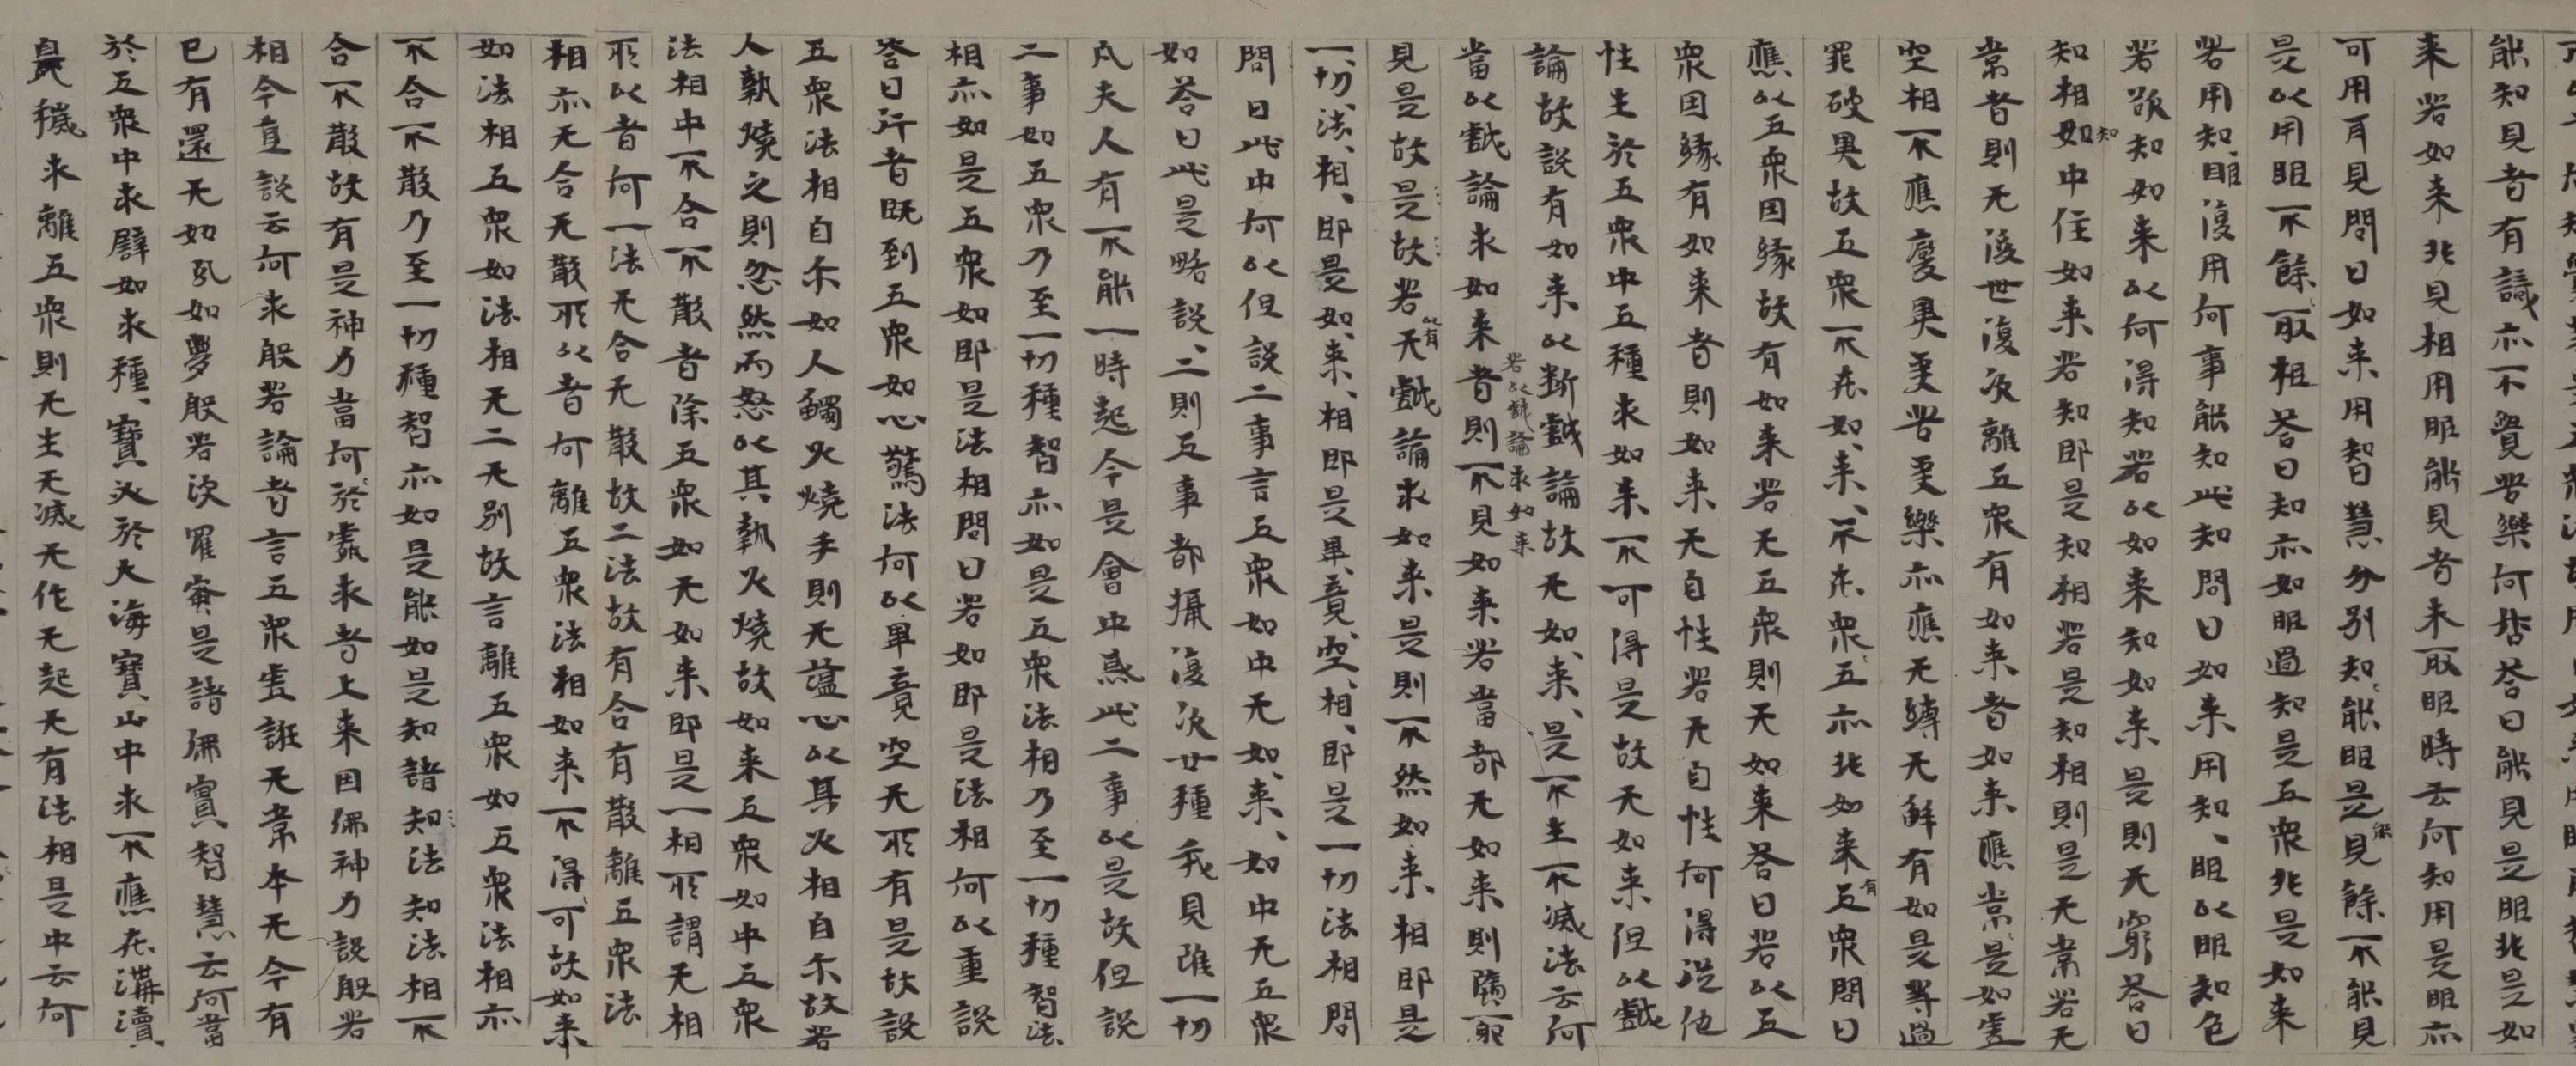 能知見者有識亦不覺苦樂何咎答曰能見是眼非是如
来若如来非見相用眼能見者未取眼時云何知用是眼亦
可用耳見問曰如来用智慧分別知能眼是能見餘不能見
是以用眼不餘取相答曰知亦如眼過知是五衆非是如来
若用知眼復用何事能知此知問曰如来用知眼以眼知色
若欲知如来以何得知若以如来知如来是則无窮答曰
知相知如中住如来若知即是知相若是知相則是无常若无
常者則无後世復次離五衆有如来者如来應常是如虚
空相不應變異受苦受樂亦應无縛无解有如是等過
罪破異故五衆不在如来如来不在五衆五亦非如来有五衆問曰
應以五衆因緣故有如来若无五衆則无如来答曰若以五
衆因緣有如来者則如来无自性若无自性何得從他
性生於五衆中五種求如来不可得是故无如来但以戲
論故說有如来以断戲論故无如来如来是不生不滅法云何
當以戲論求如来者若以戲論求如来則不見如来若當都无如来則隨邪
見是故是故若以有无戲論求如来是則不然如来相即是
一切法相一切法相即是如来相如来相即是畢竟空相畢竟空相即是一切法相問
問曰此中何以但說二事言五衆如中无如来如来如中无五衆
如答曰此是略說二則五事都攝復次廿種我見雖一切
凡夫人有不能一時起今是會中惑此二事以是故但說
二事如五衆乃至一切種智亦如是五衆法相乃至一切種智法
相亦如是五衆如即是法相問曰若如即是法相何以重說
答曰行者既到五衆如心驚法何以畢竟空无所有是故說
五衆法相自尒如人觸火燒手則无謚心以其火相自尒故若
人執燒之則忿然而怒以其執火燒故如来五衆如中五衆
法相中不合不散者除五衆如无如来即是一相所謂无相
所以者何一法无合无散故二法故有合有散離五衆法
相亦无合无散所以者何離五衆法相如来不得可故如来
如法相五衆如法相无二无別故言離五衆如五衆法相亦
不合不散乃至一切種智亦如是能如是知諸知法知法相不
合不散故有是神力當何於處求者上来因佛神力說般若
相今直說云何求般若論者言五衆虚誑无常本无今有
已有還无如幻如夢般若波羅蜜是諸佛實智慧云何當
於五衆中求譬如求種種寶必於大海寶山中求不應在溝瀆
臭穢求離五衆則无生无滅无作无起无有法相是中云何